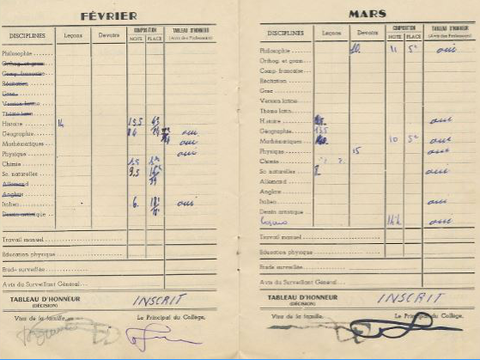 FÉVRIER
DISCIPLINES Leçons Devoirs COMPOSITION NOTE PLACE TABLEAU D'HONNEUR (Avis des Professeurs)
Philosophie
Orthog. et gram.
Comp. française
Récitation
Grec
Version latine
Thème latin
Histoire
Géographie oui
Mathématiques oui
Physique oui
Chimie
Sc. naturelles
Allemand
Anglais
Italien 6 oui
Dessin artistique
Travail manuel
Education physique
Etude surveillée
Avis du Surveillant Général
TABLEAU D'HONNEUR (DÉCISION) INSCRIT
Visa de la famille, Le Principal du Collège,
MARS
DISCIPLINES Leçons Devoirs COMPOSITION NOTE PLACE TABLEAU D'HONNEUR (Avis des Professeurs)
Philosophie 11 5e oui
Orthog. et gram.
Comp. française
Récitation
Grec
Version latine
Thème latin
Histoire oui
Géographie oui
Mathématiques 10 5e oui
Physique 15 oui
Chimie
Sc. naturelles oui
Allemand
Anglais
Italien oui
Dessin artistique
oui
Travail manuel
Education physique
Etude surveillée
Avis du Surveillant Général
TABLEAU D'HONNEUR (DÉCISION) INSCRIT
Visa de la famille, Le Principal du Collège,